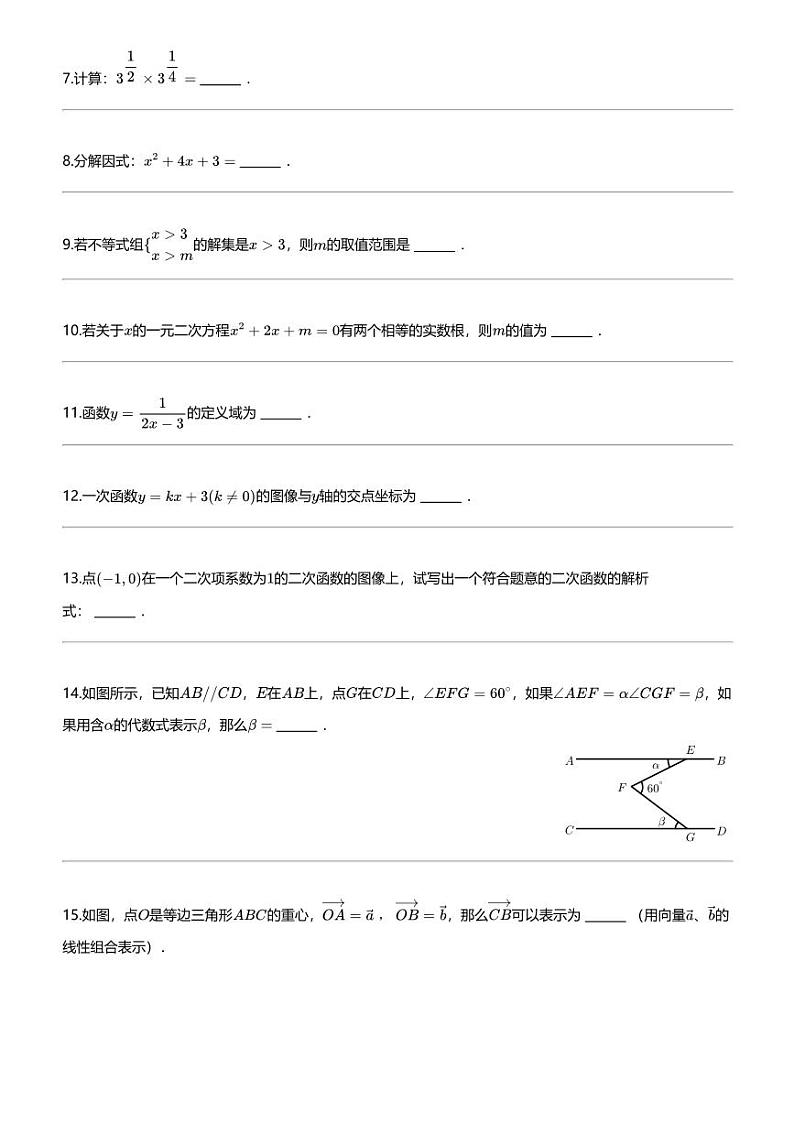 7.计算：3^{\frac{1}{2}} × 3^{\frac{1}{4}} = ______ ．
8.分解因式：x² + 4x + 3 = ______ ．
9.若不等式组{x > 3 x > m的解集是x > 3，则m的取值范围是 ______ ．
10.若关于x的一元二次方程x² + 2x + m = 0有两个相等的实数根，则m的值为 ______ ．
11.函数y = \frac{1}{2x − 3}的定义域为 ______ ．
12.一次函数y = kx + 3(k ≠ 0)的图像与y轴的交点坐标为 ______ ．
13.点(−1, 0)在一个二次项系数为1的二次函数的图像上，试写出一个符合题意的二次函数的解析
式： ______ ．
14.如图所示，已知AB//CD，E在AB上，点G在CD上，∠EFG = 60°，如果∠AEF = α∠CGF = β，如
果用含α的代数式表示β，那么β = ______ ．
A α E B
F 60°
C β G D
15.如图，点O是等边三角形ABC的重心，\overrightarrow{OA} = \vec{a} ， \overrightarrow{OB} = \vec{b}，那么\overrightarrow{CB}可以表示为 ______ （用向量\vec{a}、\vec{b}的
线性组合表示）．